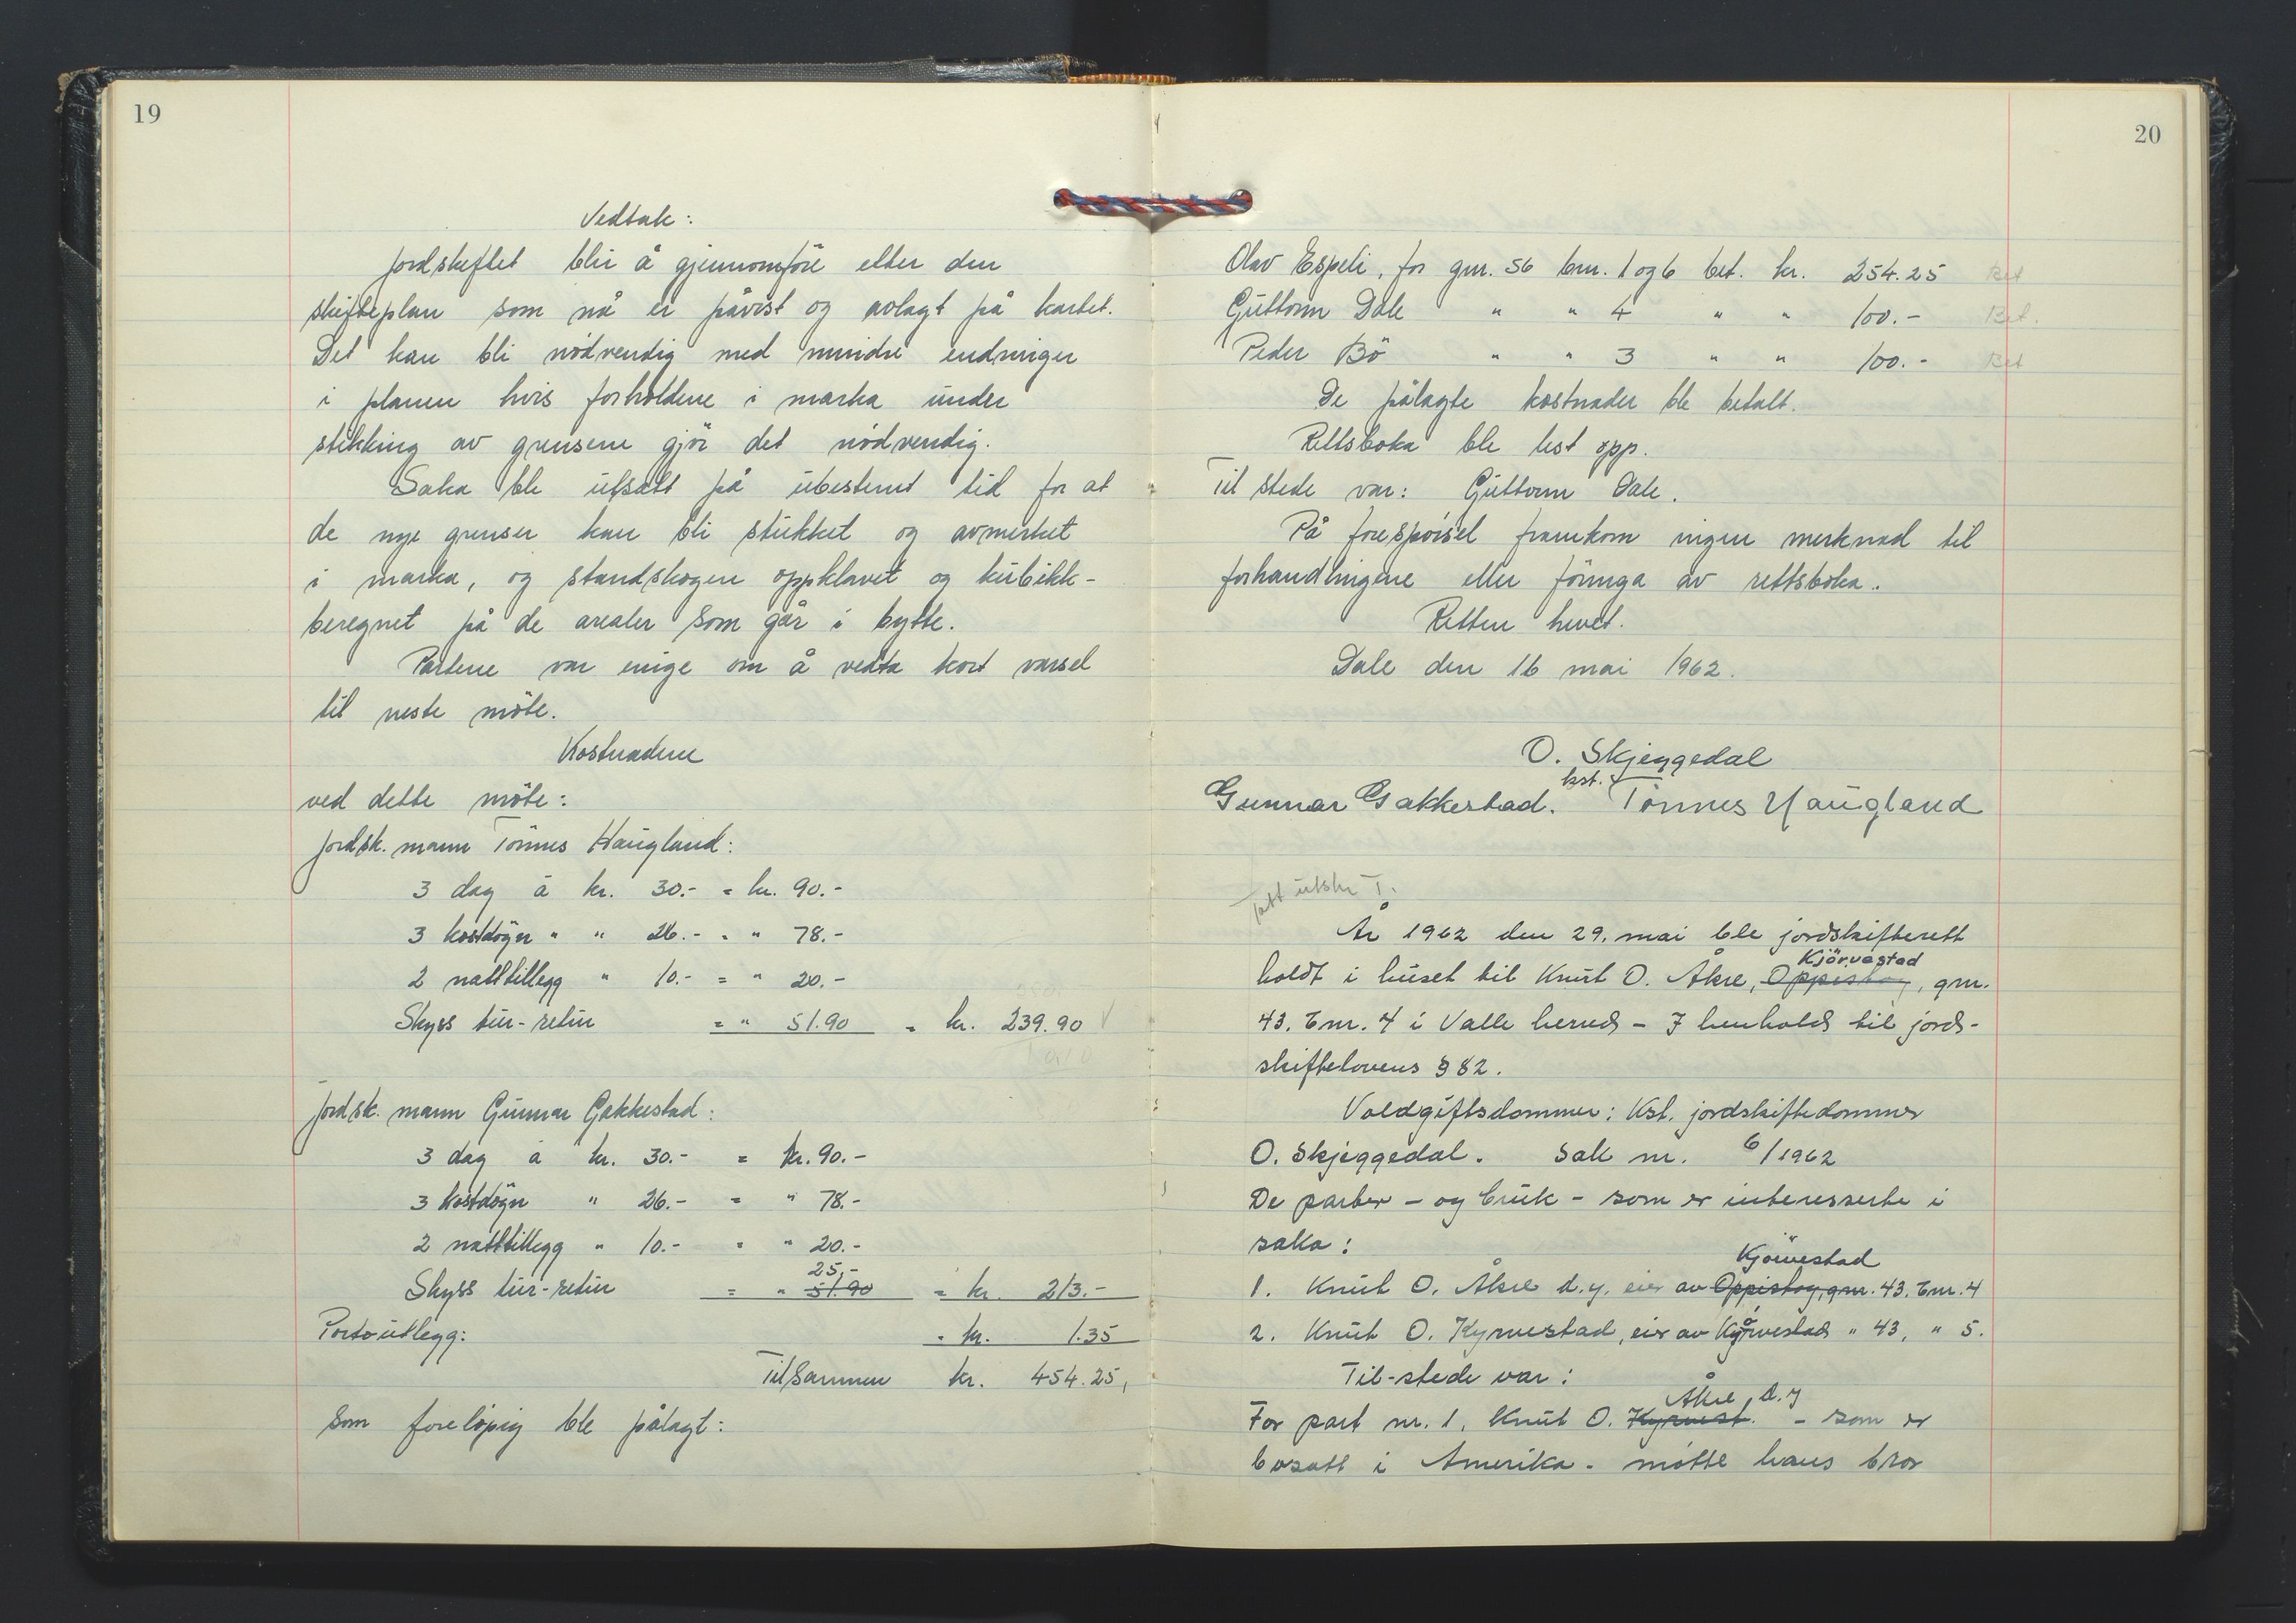 19
Vedtak:
Jordskiftet blir å gjennomföre etter den
skifteplan som nå er påvist og avlagt på kartet.
Det kan bli nödvendig med mindre endringer
i planen hvis forholdene i marka under
stikking av grensene gjör det nödvendig.
Saka ble utsatt på ubestemt tid for at
de nye grenser kan bli stukket og avmerket
i marka, og standskogen oppklavet og kubikk-
beregnet på de arealer som går i bytte.
Partene var enige om å vedta kort varsel
til neste möte.
Kostnadene
ved dette möte:
Jordsk. mann Tönnes Haugland:
3 dag á kr. 30.- = kr. 90.-
3 kostdögn " " 26.- = " 78.-
2 natttillegg " 10.- = " 20.-
Skyss tur-retur = " 51.90 = kr. 239.90
Jordsk. mann Gunnar Gakkestad:
3 dag á kr. 30.- = kr. 90.-
3 kostdögn " 26.- = " 78.-
2 natttillegg " 10.- = " 20.-
25,-
Skyss tur-retur = " 51.90 = kr. 213.-
Portoutlegg: = kr. 1.35
Tilsammen kr. 454.25,
som foreløpig ble pålagt:
20
Olav Espeli, for gnr. 56 bnr. 1 og 6 bet. kr. 254.25 Bet
Guttorm Dale " " 4 " " 100.- Bet.
Peder Bö " " 3 " " 100.- Bet
De pålagte kostnader ble betalt.
Rettsboka ble lest opp.
Til stede var: Guttorm Dale.
På forespörsel framkom ingen merknad til
forhandlingene eller föringa av rettsboka.
Retten hevet.
Dale den 16 mai 1962.
O. Skjeggedal
kst.
Gunnar Gakkestad. Tönnes Haugland
Tatt utskr T.
År 1962 den 29. mai ble jordskifterett
Kjörvestad
holdt i huset til Knut O. Åkre, Oppistog, gnr.
43. bnr. 4 i Valle herred - I henhold til jord-
skiftelovens § 82.
Voldgiftsdommer: Kst. jordskiftedommer
O. Skjeggedal. Sak nr. 6/1962
De parter - og bruk - som er interesserte i
saka:
Kjörvestad
1. Knut O. Åkre d.y. eier av Oppistog, gnr. 43. bnr. 4
2. Knut O. Kyrvestad, eier av Kyrvestad " 43, " 5.
Til-stede var:
Åkre, d.y
For part nr. 1. Knut O. Kyrvest. - som er
bosatt i Amerika - mötte hans bror